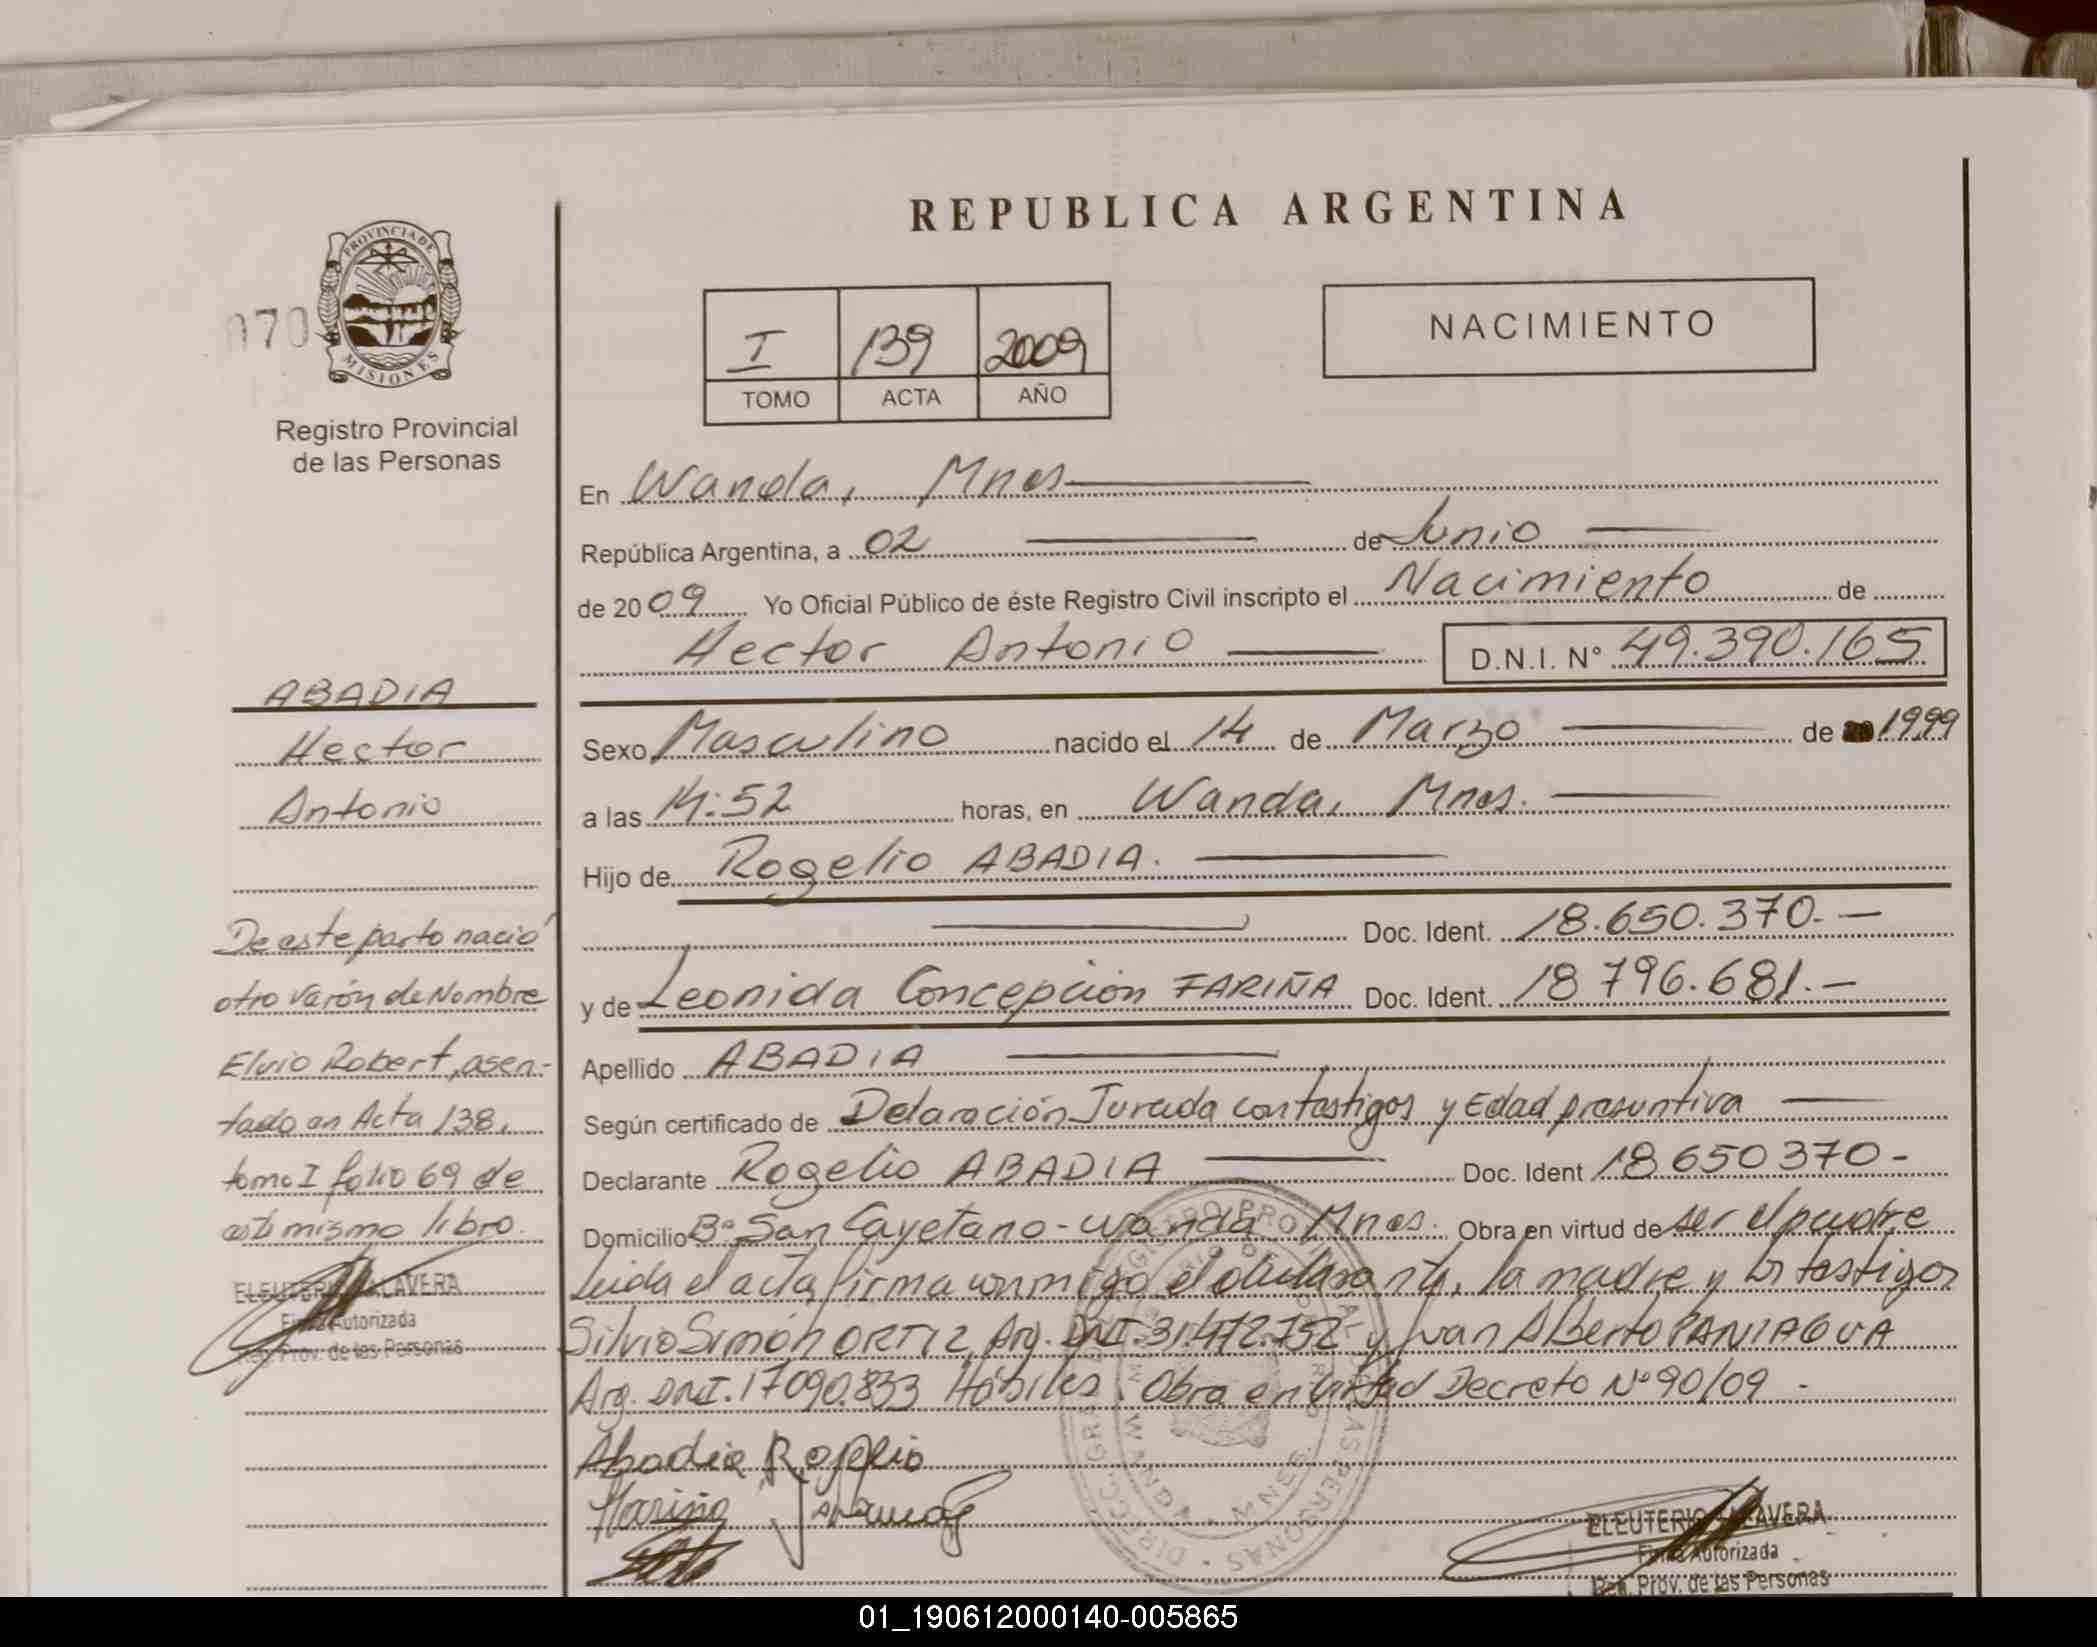 REPUBLICA ARGENTINA
PROVINCIA DE
MISIONES
070
Registro Provincial
de las Personas
I 139 2009
TOMO ACTA AÑO
NACIMIENTO
En Wanda, Mnes
República Argentina, a 02 de Junio
de 2009 Yo Oficial Público de éste Registro Civil inscripto el Nacimiento de
Hector Antonio D.N.I. N° 49.390.165
Sexo Masculino nacido el 14 de Marzo de 1999
a las 14:52 horas, en Wanda, Mnes.
Hijo de Rogelio ABADIA.
Doc. Ident. 18.650.370.-
y de Leonida Concepción FARIÑA Doc. Ident. 18 796.681.-
Apellido ABADIA
Según certificado de Delaración Jurada con testigos y Edad presuntiva
Declarante Rogelio ABADIA Doc. Ident 18 650 370-
Domicilio B° San Cayetano-Wanda Mnes. Obra en virtud de ser el padre
Leida el acta, firma conmigo el declarante, la madre y los testigos
Silvio Simón ORTIZ, Arg. DNI. 31.472.752 y Juan Alberto PANIAGUA
Arg. DNI. 17090.833 Hábiles. Obra en virtud Decreto N°90/09 -
Abadia Rogelio
Fariña
ELEUTERIO TALAVERA
Firma Autorizada
Reg. Prov. de las Personas
ABADIA
Hector
Antonio
De este parto nació
otro varón de Nombre
Elvio Robert, asen-
tado en Acta 138,
tomo I folio 69 de
este mismo libro.
ELEUTERIO TALAVERA
Firma Autorizada
Reg. Prov. de las Personas
01_190612000140-005865